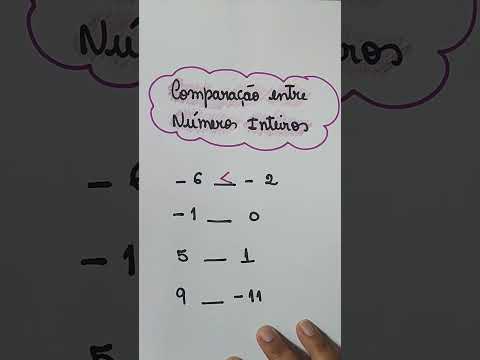 Comparação entre
Números Inteiros
-6 < -2
-1 __ 0
5 __ 1
9 __ -11